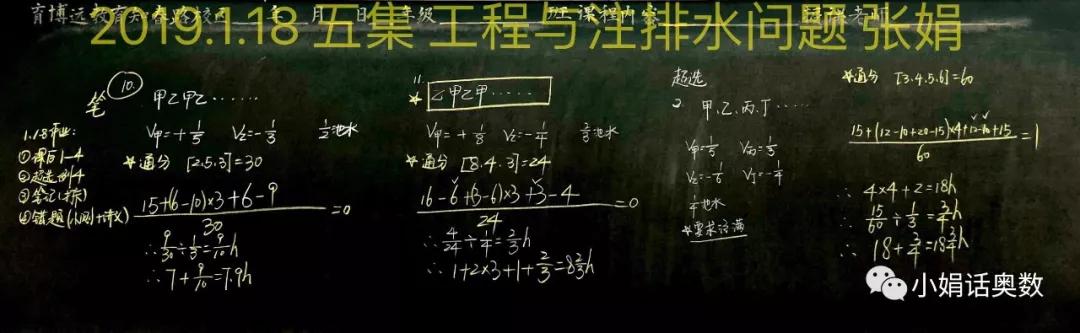 育博远教育知春路校区 年 月 日 年级 班 课程内容 授课老师
2019.1.18 五集 工程与注排水问题 张娟
1.18作业:
①课后1-4
②超选例4
③笔记(1,拆)
笔 10. 甲乙甲乙……
V甲=+1/5 V乙=-1/3 1/2池水
*通分 [2.5.3]=30
15+(6-10)×3+6-9/30=0
∴ 9/30÷1/3=9/10h
∴ 7+9/10=7.9h
11.
* 乙甲乙甲……
V甲=+1/8 V乙=-1/4 2/3池水
*通分 [8.4.3]=24
16-6+(3-6)×3+3-4/24=0
∴ 4/24÷1/4=2/3h
∴ 1+2×3+1+2/3=8 2/3h
超选
2. 甲、乙、丙、丁……
V甲=1/3 V丙=1/5
V乙=-1/6 V丁=-1/4
1/4池水
*要求注满
*通分 [3.4.5.6]=60
15+(12-10+20-15)×4+12-10+15/60=1
∴ 4×4+2=18h
∴ 15/60÷1/3=3/4h
∴ 18+3/4=18 3/4h
小娟话奥数